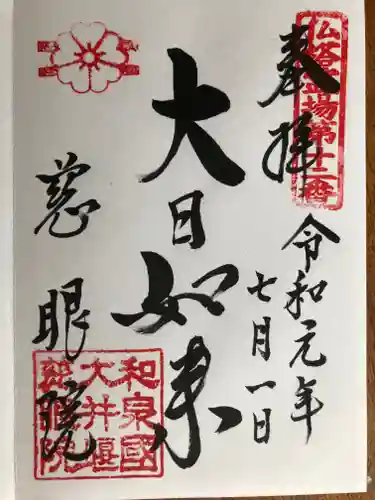 奉拝
仏塔霊場第十二番
令和元年
七月一日
大日如来
慈眼院
和泉國
大井堰
慈眼院